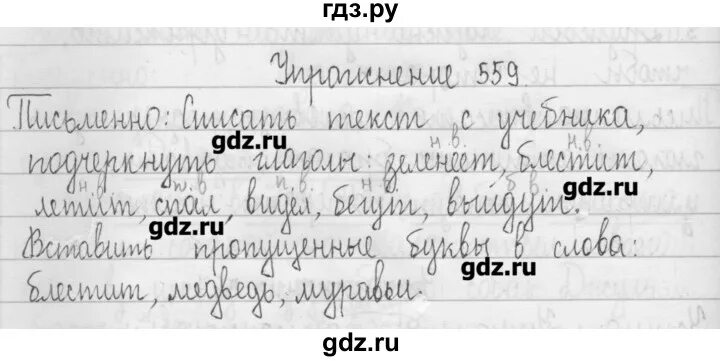 гдз.ру
Упражнение 559
Письменно: Списать текст с учебника,
gdz.ru
подчеркнуть глаголы: зеленеет, блестит,
н.в. н.в.
gdz.ru
н.в. п.в. п.в. н.в. б.в.
летит, спал, видел, бегут, выйдут.
gdz.ru
Вставить пропущенные буквы в слова:
gdz.ru
блестит, медведь, муравьи.
gdz.ru